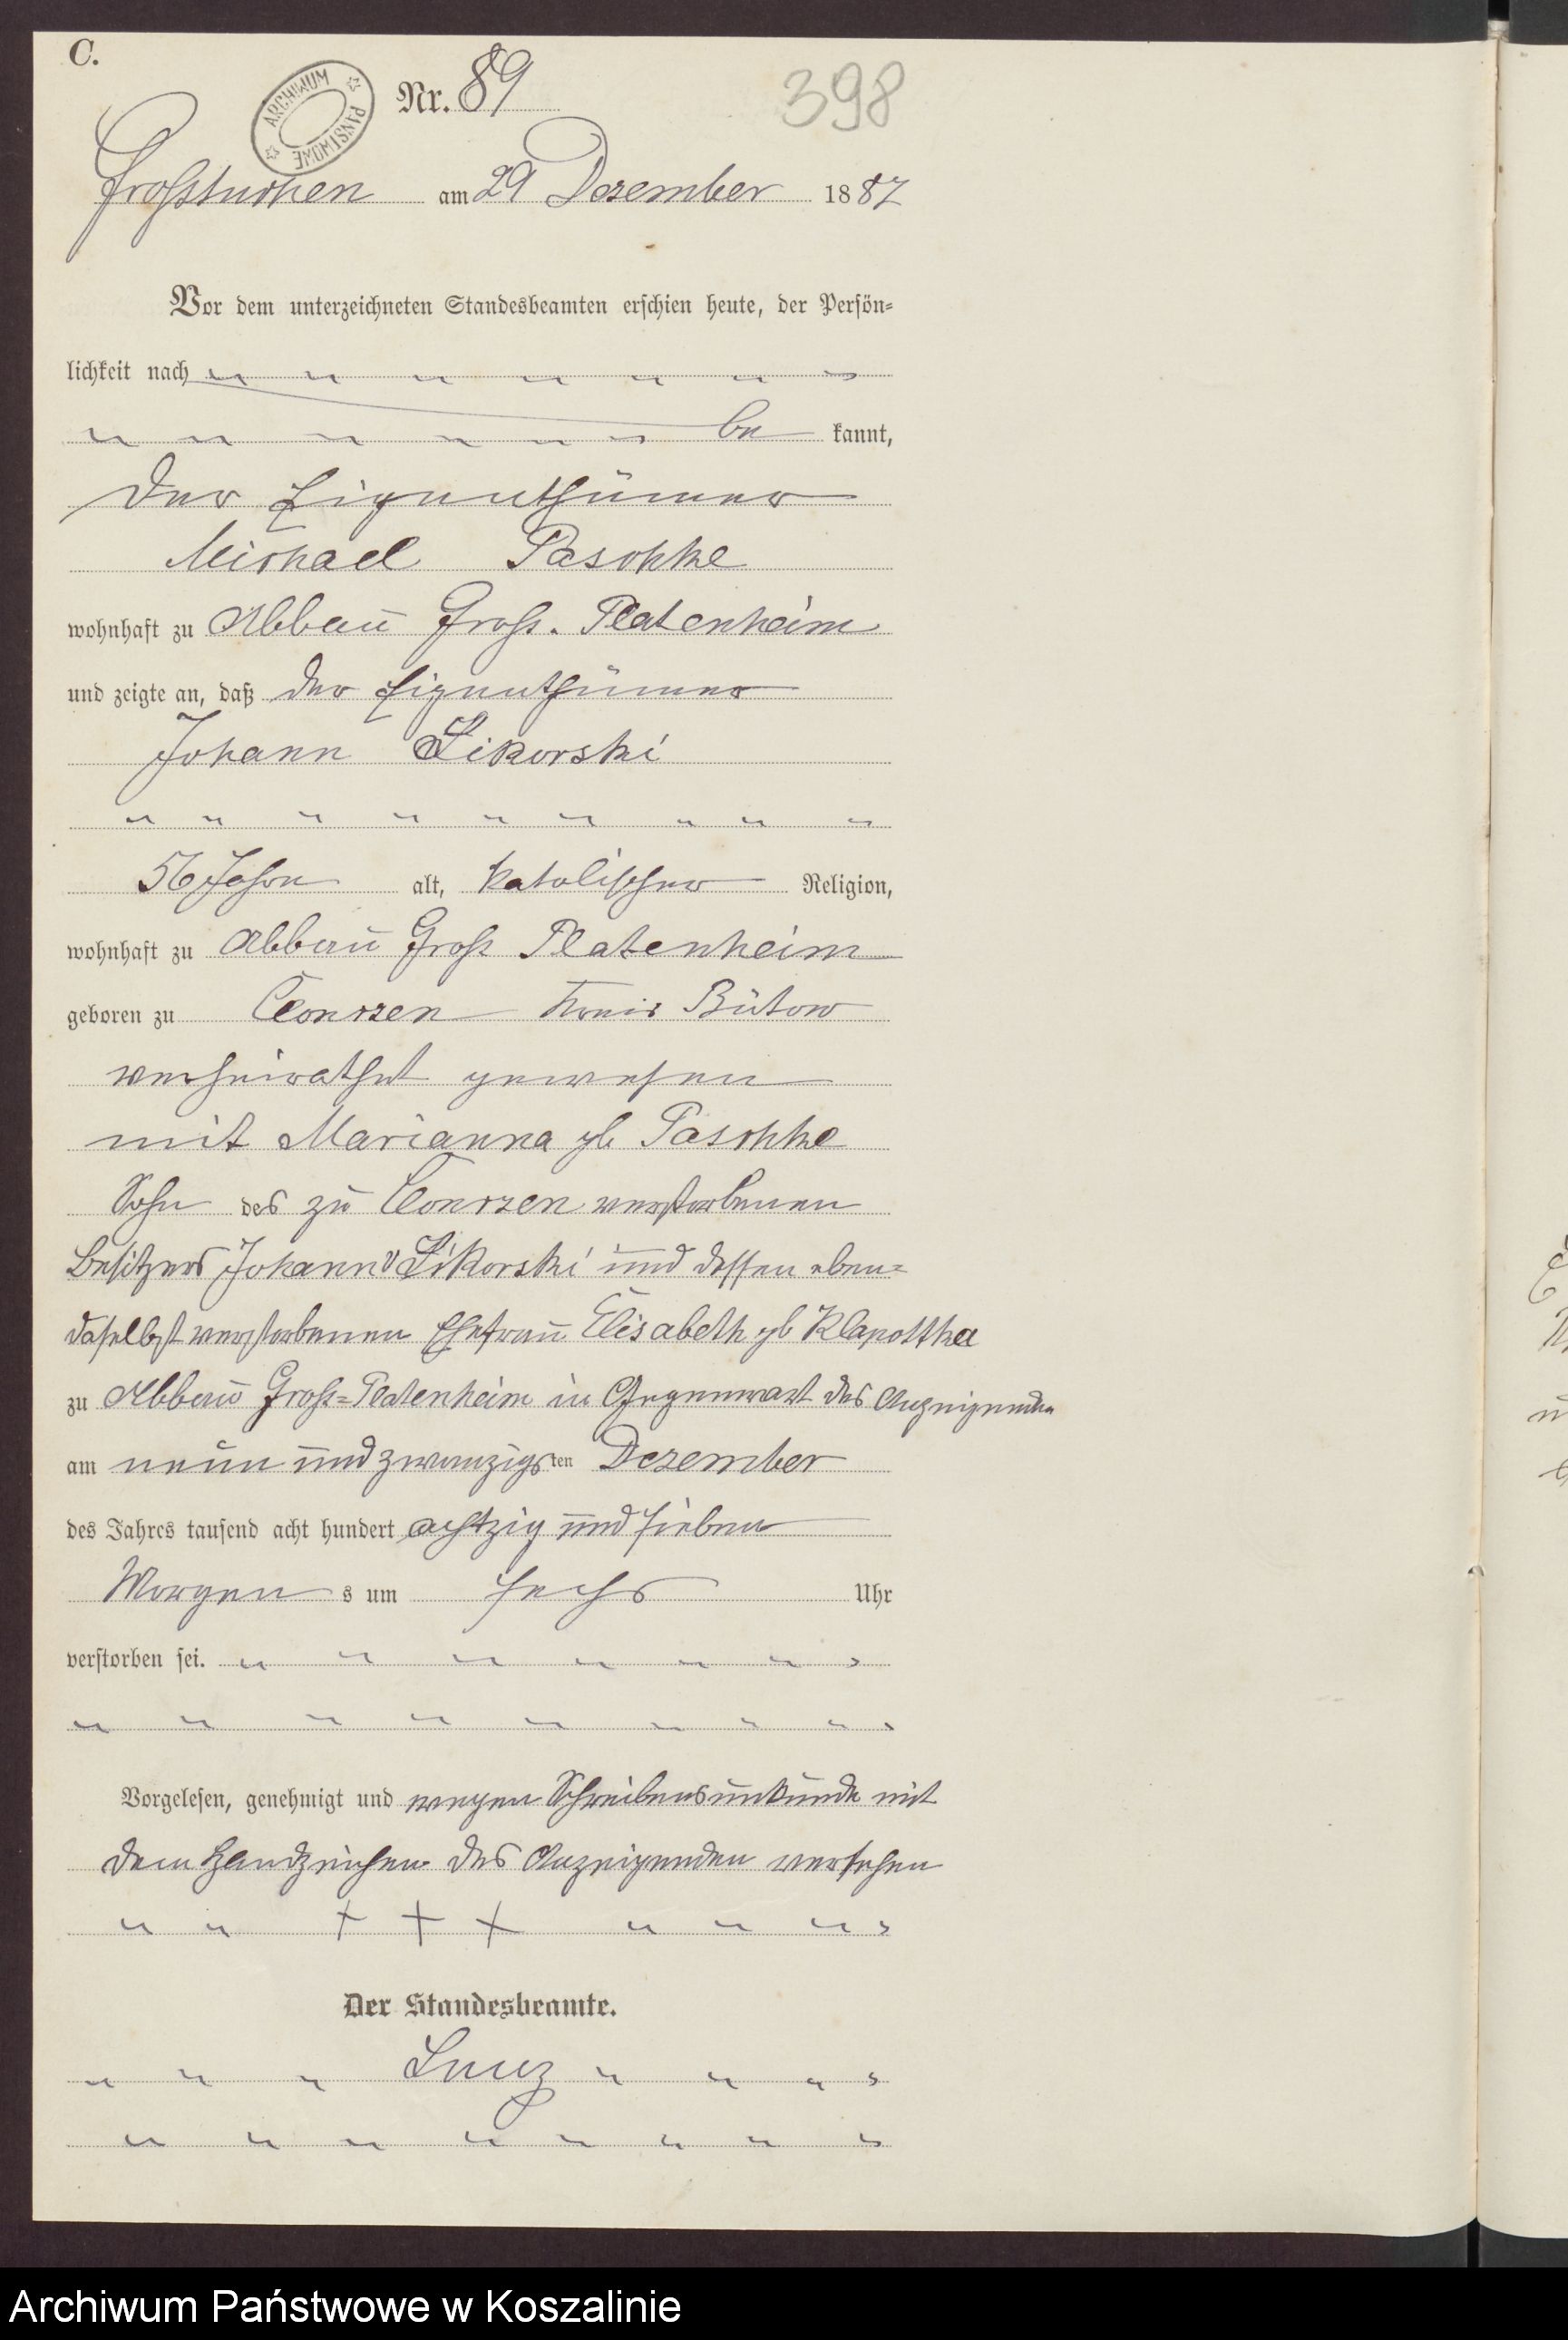 C.
ARCHIWUM PAŃSTWOWE
Nr. 89
398
Großtuchen am 29 Dezember 1887
Vor dem unterzeichneten Standesbeamten erschien heute, der Persön-
lichkeit nach
be kannt,
der Eigenthümer
Michael Paschke
wohnhaft zu Abbau Groß. Platenheim
und zeigte an, daß der Eigenthümer
Johann Sikorski
56 Jahre alt, katolischer Religion,
wohnhaft zu Abbau Groß Platenheim
geboren zu Czonczen Kreis Bütow
verheirathet gewesen
mit Marianna gb Paschke
Sohn des zu verstorbenen
Besitzers Johann Sikorski und dessen eben-
daselbst verstorbenen Ehefrau Elisabeth gb
zu Abbau Groß-Platenheim in Gegenwart des Anzeigenden
am neun und zwanzigsten Dezember
des Jahres tausend acht hundert achtzig und sieben
Morgen s um sechs Uhr
verstorben sei.
Vorgelesen, genehmigt und wegen Schreibensunkunde mit
dem Handzeichen des Anzeigenden versehen
+ + +
Der Standesbeamte.
Archiwum Państwowe w Koszalinie